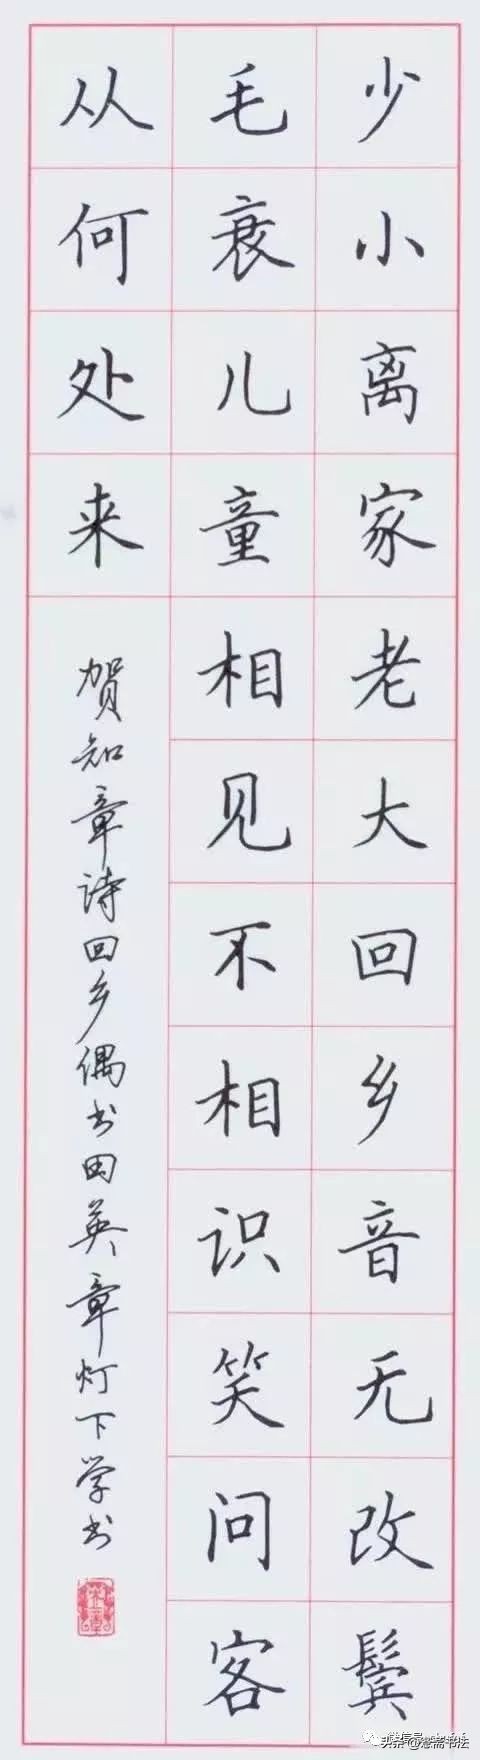 少小离家老大回乡音无改鬓
毛衰儿童相见不相识笑问客
从何处来
贺知章诗回乡偶书田英章灯下学书